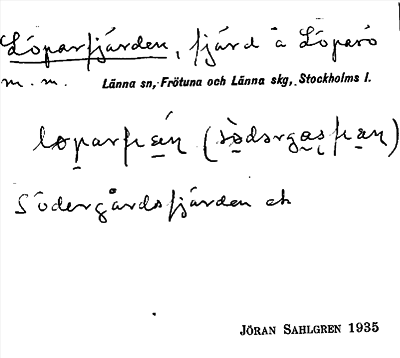 Löparfjärden, fjärd å Löparö
m. m. Länna sn, Frötuna och Länna skg, Stockholms l.
Södergårdsfjärden
JÖRAN SAHLGREN 1935